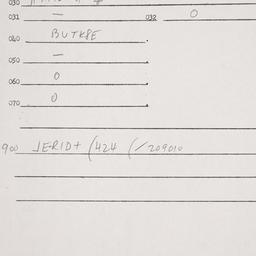 030
031 — 032 0
040 BUTKSE.
050 —
060 0
070 0
900 JERID+ (424 (/209010